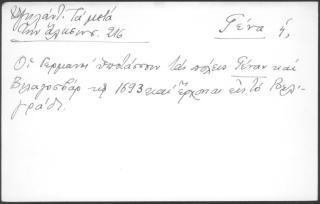 Ὑψηλάντ. Τὰ μετὰ
τὴν ἅλωσιν. 216
Γένα ἡ,
Οἱ Γερμανοὶ ὑποτάσσουν τὰς πόλεις Γέναν καὶ
Βιλαγοσβὰρ τῷ 1693 καὶ ἔρχονται εἰς τὸ Βελι-
γράδι.